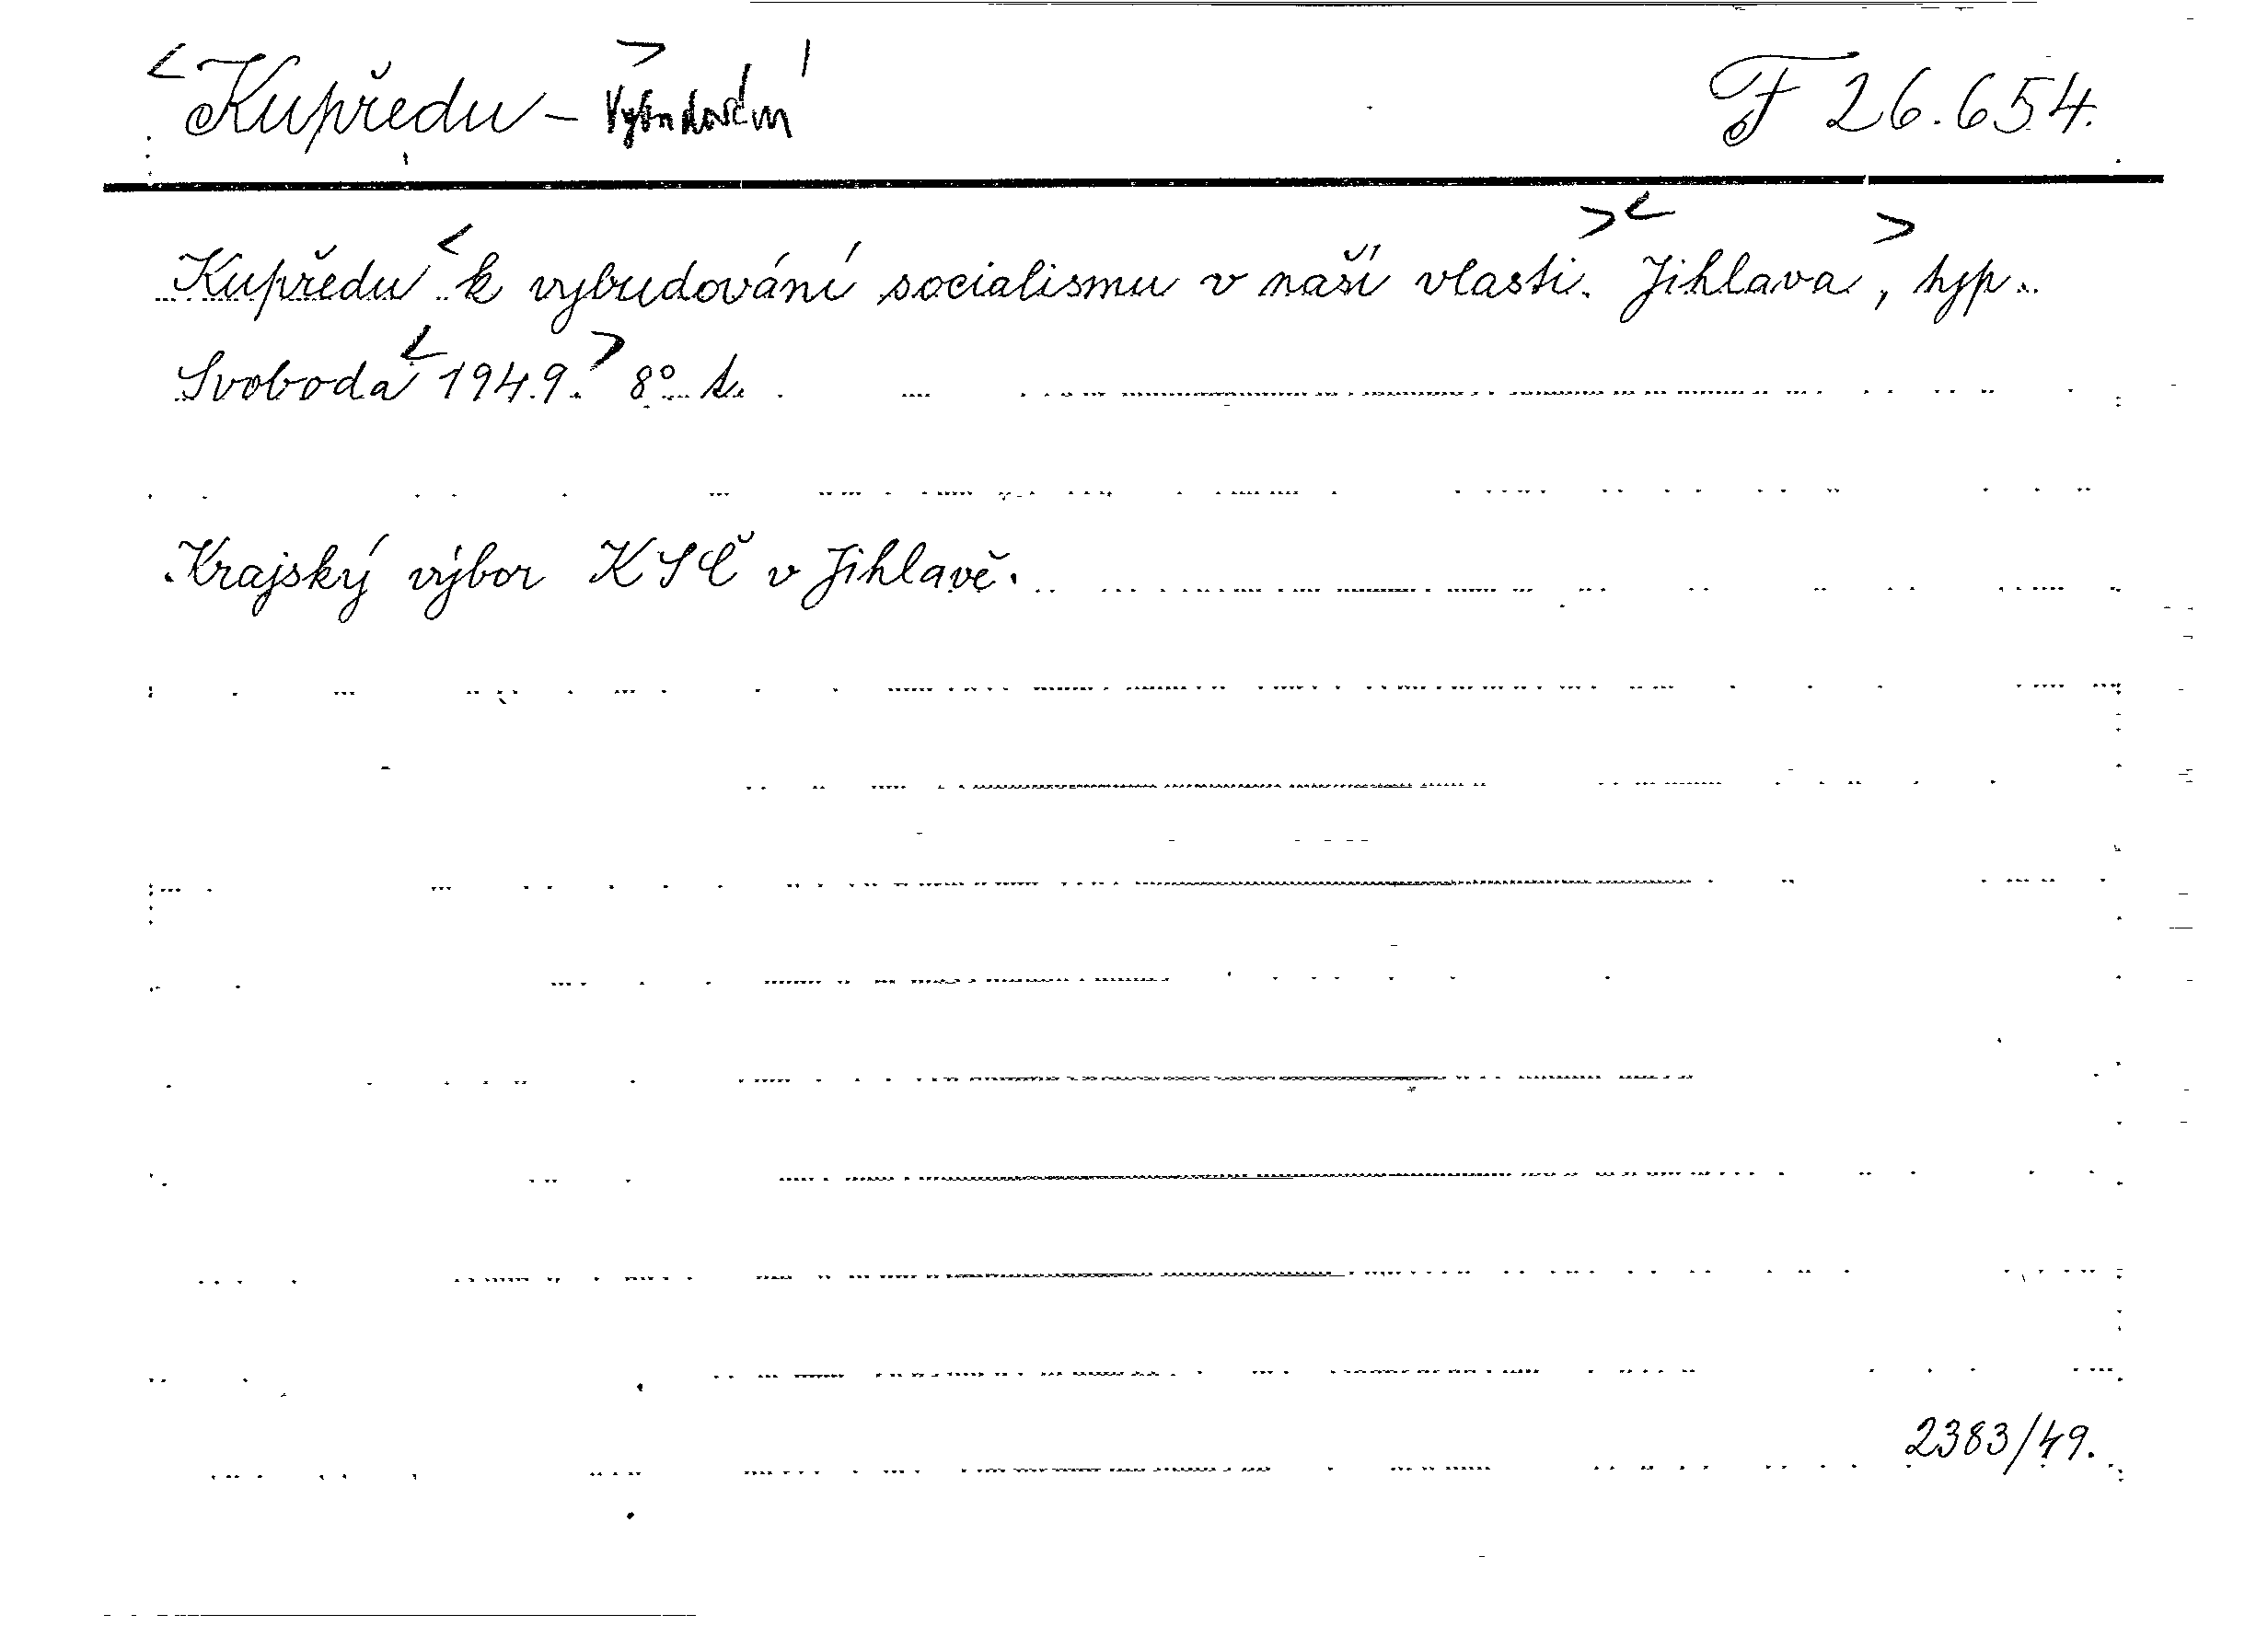 Kupředu - Vybudování F 26.654.
Kupředu k vybudování socialismu v naší vlasti. Jihlava, typ.
Svoboda 1949. 8° s.
Krajský výbor KSČ v Jihlavě.
2383/49.